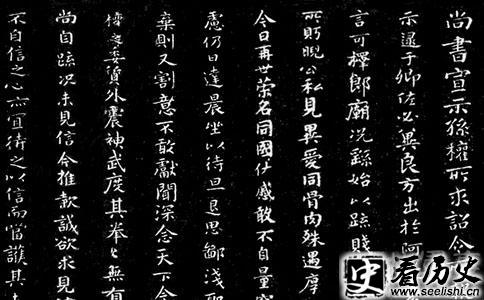 尚書宣示孫權所求詔令
示逮于卿佐必冀良方出於阿
言可擇郎廟況繇始以疏賤
所眄睨公私見異愛同骨肉殊遇厚
今日再世榮名同國休慼敢不自量竊
慮仍日達晨坐以待旦退思鄙淺
棄則又割意不敢獻聞深念天下今
權之委質外震神武度其拳拳無有
尚自疏況未見信今推款誠欲求見
不自信之心亦宜待之以信而當護其未
史 看历史
www.seelishi.cn